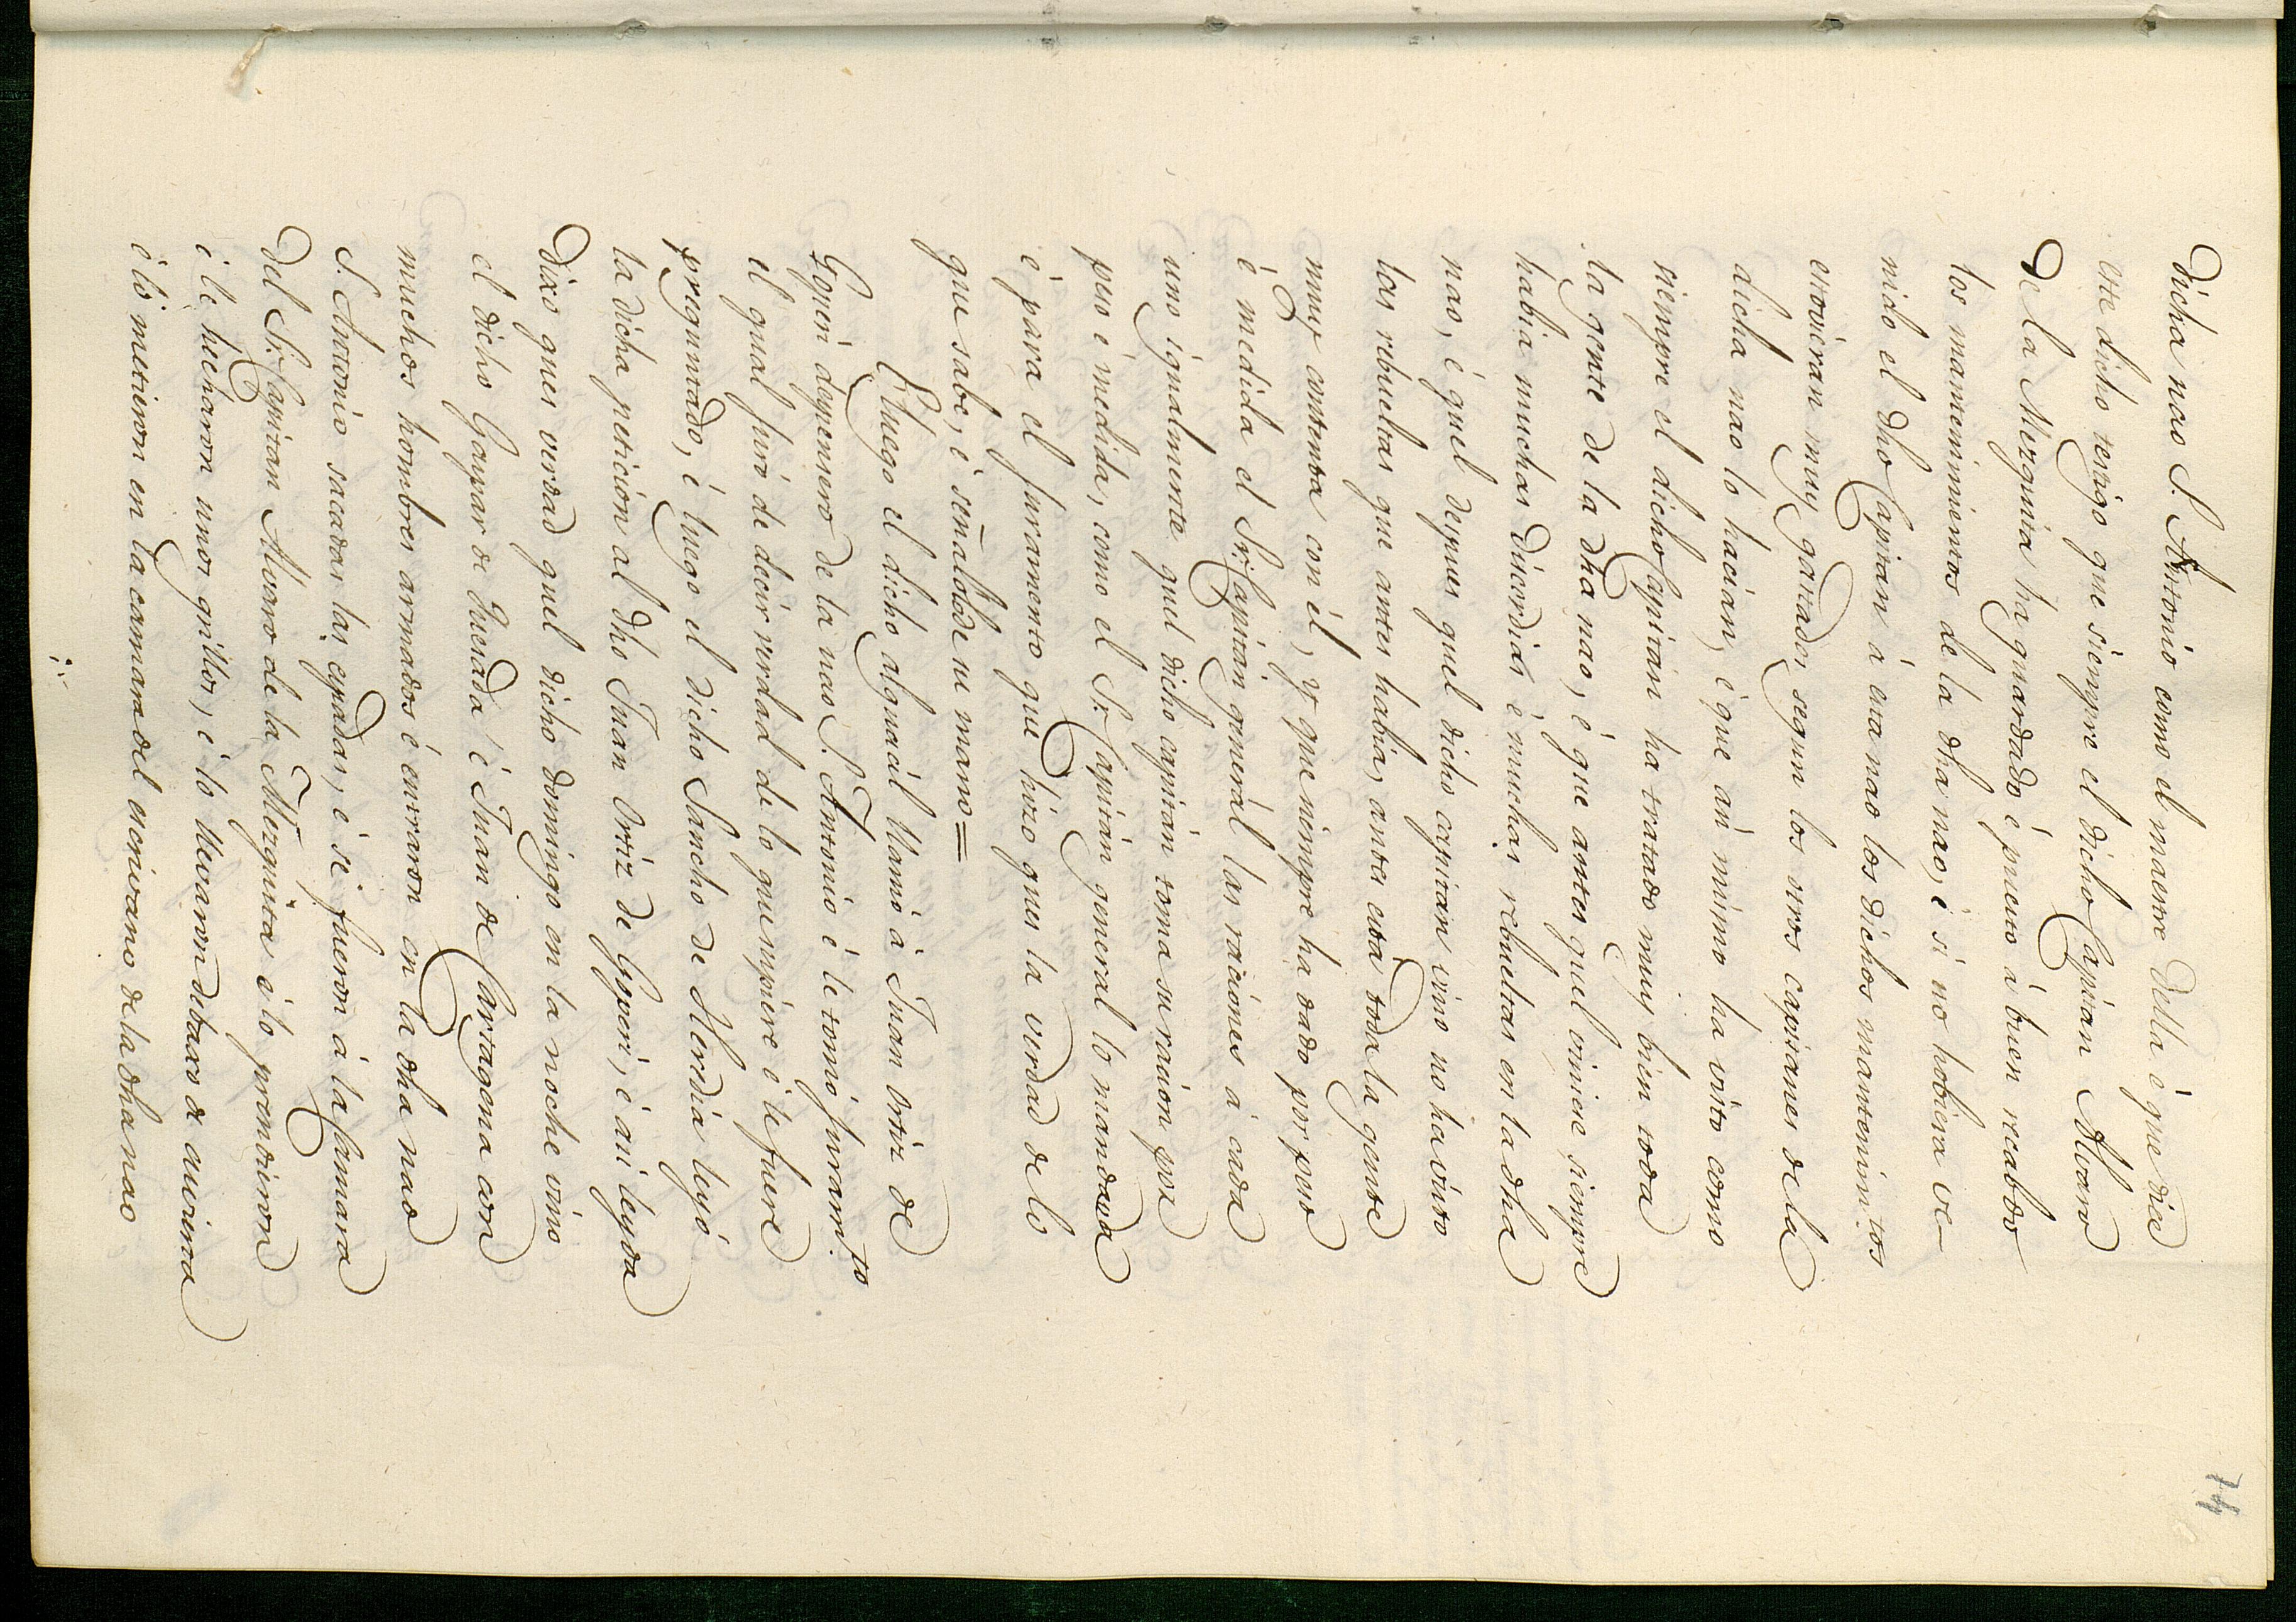 74
dicha nao S. Antonio como el maestre della è que dicé
este dicho testigo que siempre el dicho Capitan Alvaro
de la Mezquita ha guardado é puesto á buen recabdo
los mantenimientos de la dha nao, é si no hobiera ve-
nido el dho Capitan á esta nao los dichos mantenimitos
estovieran muy gastados segun los otros capitanes de la
dicha nao lo hacian, é que asi mismo ha visto como
siempre el dicho Capitan ha tratado muy bien toda
la gente de la dha nao, é que antes quel viniese siempre
habia muchas discordias é muchas rebueltas en la dha
nao, é quel despues quel dicho capitan vino no ha visto
las rebueltas que antes habia, antes está toda la gente
muy contenta con él, y que siempre ha dado por peso
é medida el Sr. Capitan general las raciones á cada
uno igualmente quel dicho capitan toma su racion por
peso é medida, como el Sr. Capitan general lo mandaba
é para el juramento que hizo ques la verdad de lo
que sabe, é señalolo de su mano=
E luego el dicho alguacil llamó á Juan Ortiz de
Goperi despensero de la nao S. Antonio é le tomó juramto
el qual juró de decir verdad de lo que supiere é le fuere
preguntado, é luego el dicho Sancho de Heredia leyó
la dicha peticion al dho Juan Ortiz de Goperi, é asi leyda
dixo ques verdad quel dicho domingo en la noche vino
el dicho Gaspar de Quesada é Juan de Cartagena con
muchos hombres armados é entraron en la dha nao
S. Antonio sacadas las espadas, é se fueron á la Camara
del Sr. Capitan Alvaro de la Mezquita é lo prendieron
é le hecharon unos grillos, é lo llevaron debaxo de cubierta
é lo metieron en la camara del escrivano de la dha nao